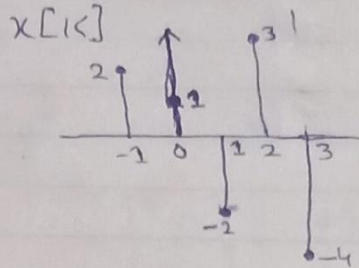 x[k]
3
2
1
-1 0 1 2 3
-2
-4